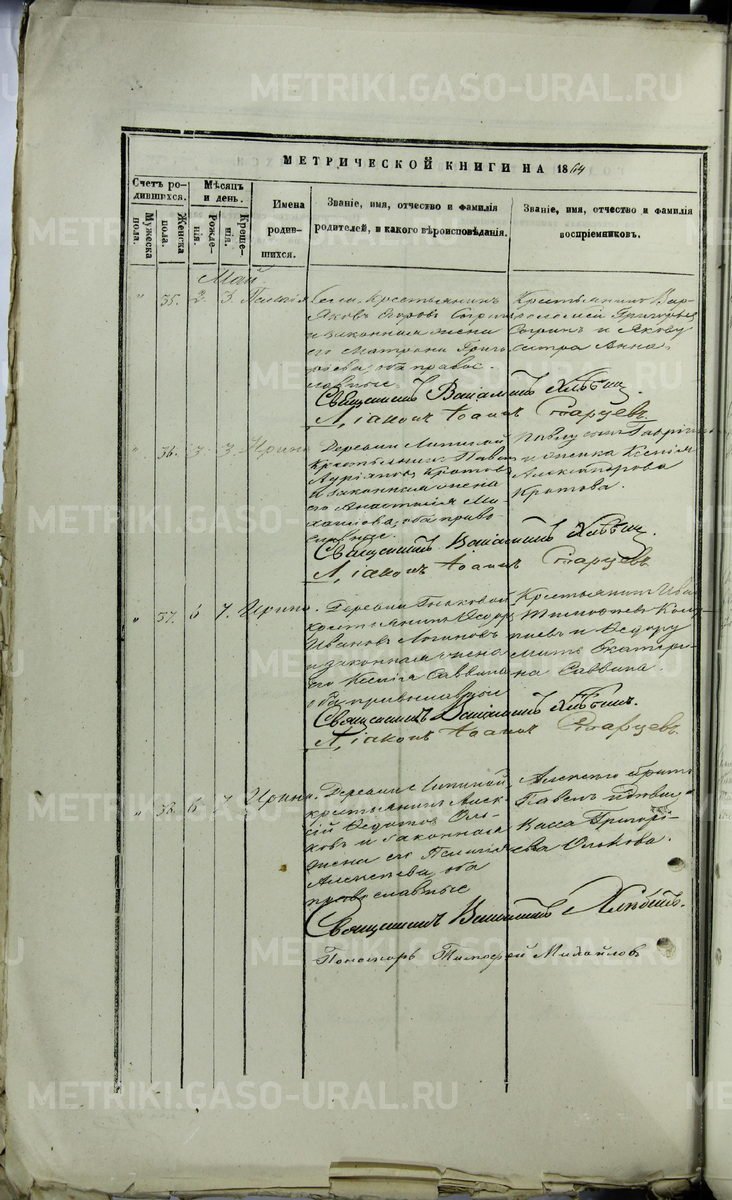 METRIKI.GASO-URAL.RU
МЕТРИЧЕСКОЙ КНИГИ НА 1864
Счетъ родившихся.
Мужеска пола.
Женска пола.
Мѣсяцъ и день.
Рожденія.
Крещенія.
Имена родившихся.
Званіе, имя, отчество и фамилія родителей, и какого вѣроисповѣданія.
Званіе, имя, отчество и фамилія воспріемниковъ.
Май.
" 35. 2. 3. Пелагія
Села крестьянинъ
Яковъ Егоровъ
и законная жена
его Матрона Григорь
ева, оба правос
лавные.
Крестьянинъ Вар
ѳоломей Григорьев
и Якову
сестра Анна
Священникъ Хлѣбинъ.
Діаконъ Іоаннъ Старцевъ.
" 36. 3. 3. Ирина
Деревни Липиной
крестьянинъ Павел
Кротовъ
и законная жена
его Анастасія Ми
хаилова, оба право
славные.
Павлу сынъ Гаврiилъ
и женка Ксенія
Александрова
Кротова.
Священникъ Хлѣбинъ.
Діаконъ Іоаннъ Старцевъ
" 37. 6 7. Ирина.
Деревни
крестьянинъ Ѳедоръ
Ивановъ Логиновъ
и законная жена
его Ксенія Саввина
оба православные
Крестьянинъ Иван
Тимофѣевъ
и Ѳедору
мать Екатери
на Саввина.
Священникъ Хлѣбинъ.
Діаконъ Іоаннъ Старцевъ.
" 38. 6. 7. Ирина.
Деревни Липиной,
крестьянинъ Алек
сій Ѳедотовъ Оль
ковъ и законная
жена его Пелагія
Алексѣева, оба
православные
Алексѣю братъ
Павелъ и дѣвица
Васса Григорі
ева Олькова.
Священникъ Хлѣбинъ.
Пономарь Тимофей Михайловъ